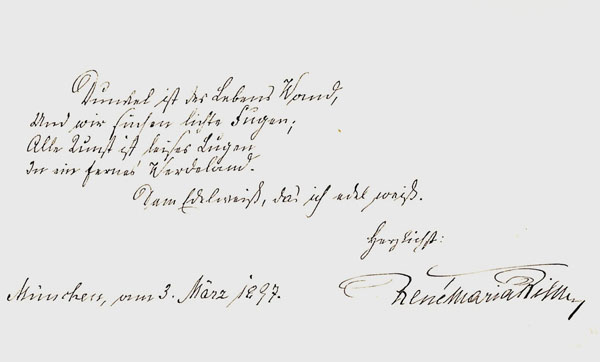 Dunkel ist des Lebens Wand,
Und wir suchen lichte Fugen;
Alle Kunst ist leises Lugen
In ein fernes Werdeland.
Dem Edelweiß, das ich edel weiß.
Herzlichst:
München, am 3. März 1897.
René Maria Rilke